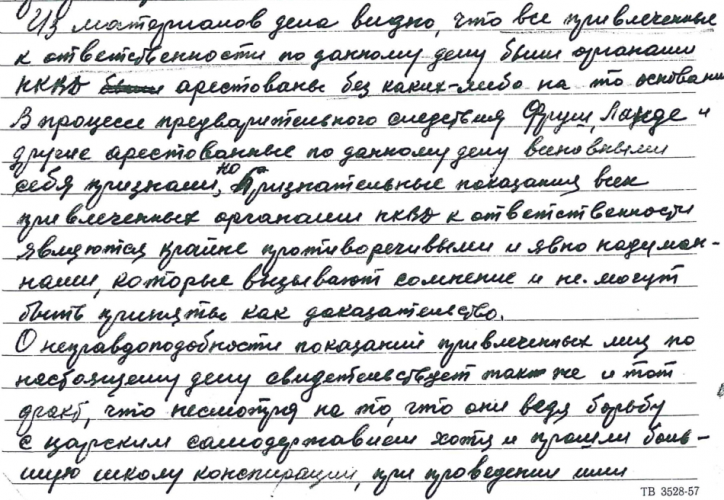 Из материалов дела видно, что все привлеченные
к ответственности по данному делу были органами
НКВД были арестованы без каких-либо на то основани
В процессе предварительного следствия Фруш, Ланде и
другие арестованные по данному делу виновными
себя признали, но признательные показания всех
привлеченных органами НКВД к ответственности
являются крайне противоречивыми и явно надуман-
нами, которые вызывают сомнение и не могут
быть приняты как доказательство.
О неправдоподобности показаний привлеченных лиц по
настоящему делу свидетельствует так же и тот
факт, что несмотря на то, что они ведя борьбу
с царским самодержавием хотя и прошли боль-
шую школу конспирации, при проведении ими
ТВ 3528-57